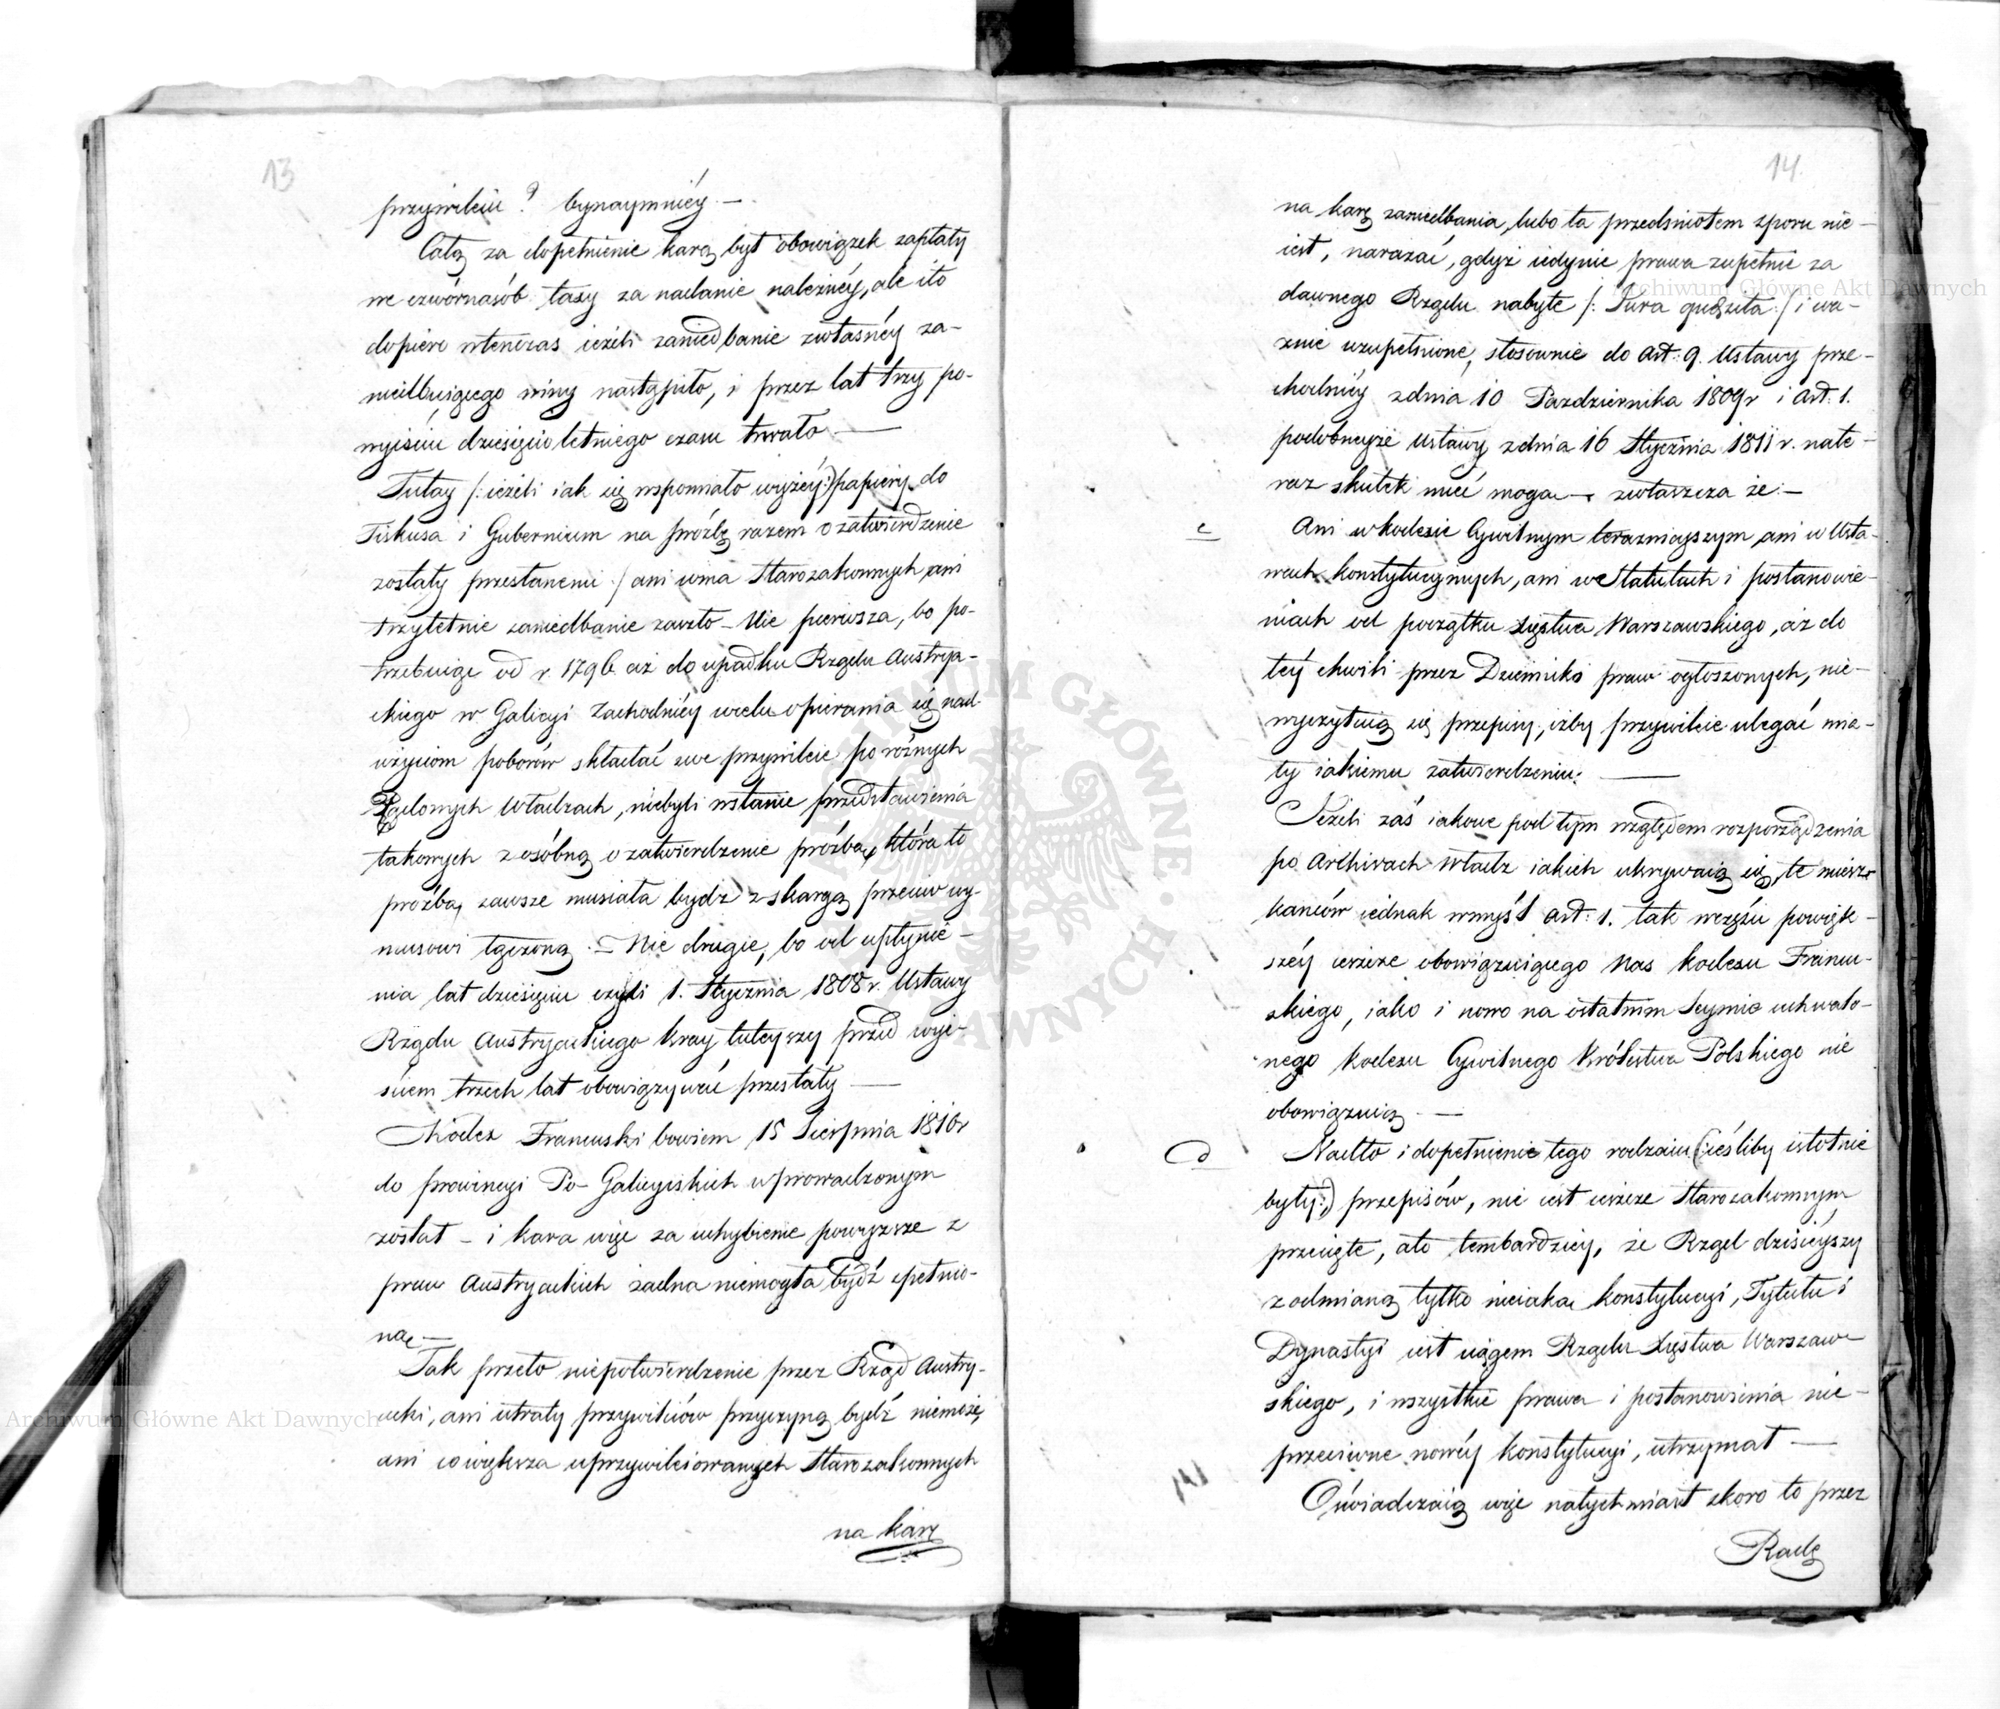 13
przywileiu? bynaymniéy. —
Całą za dopełnienie karą był obowiązek zapłaty
we czwórnasób taxy za nadanie należnéy, ale i to
dopiero wtenczas ieżeli zaniedbanie zwłasnéy za-
niedbuiącego winy nastąpiło, i przez lat trzy po-
wyiściu dziesięcio letniego czasu trwało —
Tutay /: ieżeli iak się wspomniało wyżéy :/ papiery do
Fiskusa i Gubernium na proźbę razem o zatwierdzenie
zostały przesłanemi :/ ani wina Starozakonnych ani
trzyletnie zaniedbanie zaszło — Nie pierwsza, bo po-
trzebuiąc od r. 1796 aż do upadku Rządu Austrya-
ckiego w Galicyi Zachodniéy wielu opierania się nad-
użyciom poborów składać swe przywileie po różnych
Rządowych Władzach, niebyli wstanie przedstawienia
takowych z osóbną o zatwierdzenie proźbą, która to
proźba, zawsze musiała bydź z skargą przeciw wy-
musowi łączoną. — Nie drugie, bo od upłynie-
nia lat dziesięciu czyli 1. Stycznia 1808 r. Ustawy
Rządu Austryackiego kray tuteyszy przed wyi-
ściem trzech lat obowiązywać przestały —
Kodex Francuski bowiem 15 Sierpnia 1810 r
do prowincyi Po-Galicyiskich wprowadzonym
został — i kara więc za uchybienie powyższe z
praw Austryackich żadna niemogła bydź spełnio-
ną —
Tak przeto niepotwierdzenie przez Rząd Austry-
acki, ani utraty przywileiów przyczyną bydź niemoże,
ani co większa uprzywileiowanych Starozakonnych
na karę
14
na karę zaniedbania, lubo ta przedmiotem sporu nie-
iest, narażać, gdyż iedynie prawa zupełnie za
dawnego Rządu nabyte /: Jura quesita :/ i wa-
żnie uzupełnione, stosownie do Art: 9. Ustawy prze-
chodniéy z dnia 10 Pazdziernika 1809 r i Art: 1.
podobneyże Ustawy z dnia 16 Stycznia 1811 r. nate-
raz skutek mieć mogą — zwłaszcza że: —
c
Ani w kodexie Cywilnym terazniejszym ani w Usta-
wach konstytucyinych, ani w Statutach i postanowie-
niach od początku Xięstwa Warszawskiego, aż do
téy chwili przez Dzienniki praw ogłoszonych, nie-
wyczytuią się przepisy, iżby przywileie ulegać mia-
ły iakiemu zatwierdzeniu: —
Jeżeli zaś iakowe pod tym względem rozporządzenia
po Archivach Władz iakich ukrywaią się, te miesz-
kańców iednak wmyśl Art: 1. tak wczęści powięk-
széy ieszcze obowiązuiącego Nas kodexu Francu-
skiego, iako i nowo na ostatnim Seymie uchwalo-
nego kodexu Cywilnego Królestwa Polskiego nie
obowiązuią. —
d
Nadto i dopełnienie tego rodzaiu (: ieśliby istotnie
były :) przepisów, nie iest ieszcze Starozakonnym
przecięte, a to tembardziey, że Rząd dzisiéyszy
z odmianą tylko nieiaką konstytucyi, Tytułu i
Dynastyi iest ciągem Rządu Xięstwa Warszaw-
skiego, i wszystkie prawa i postanowienia nie-
przeciwne nowéy konstytucyi, utrzymał —
Oświadczaią więc natychmiast skoro to przez
Radę
Archiwum Główne Akt Dawnych
Archiwum Główne Akt Dawnych
ARCHIWUM GŁÓWNE AKT DAWNYCH